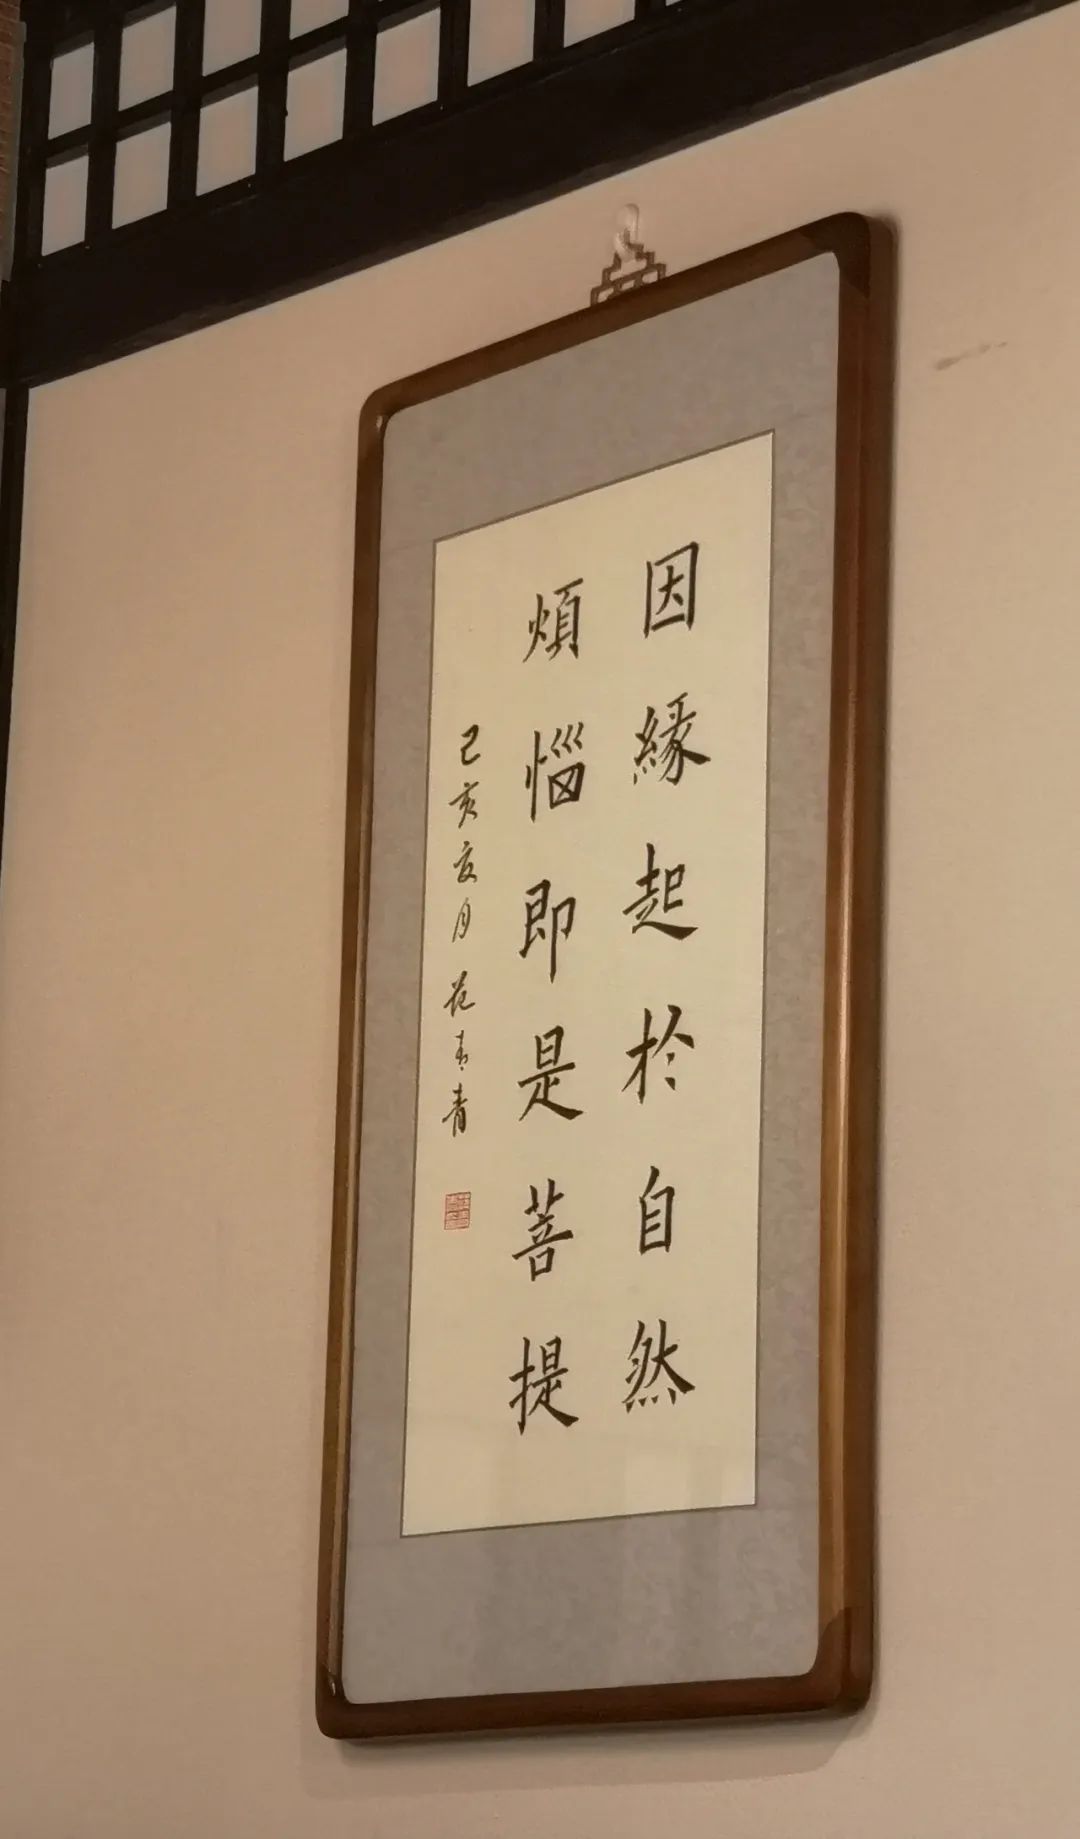 因緣起於自然
煩惱即是菩提
己亥亥月范青青